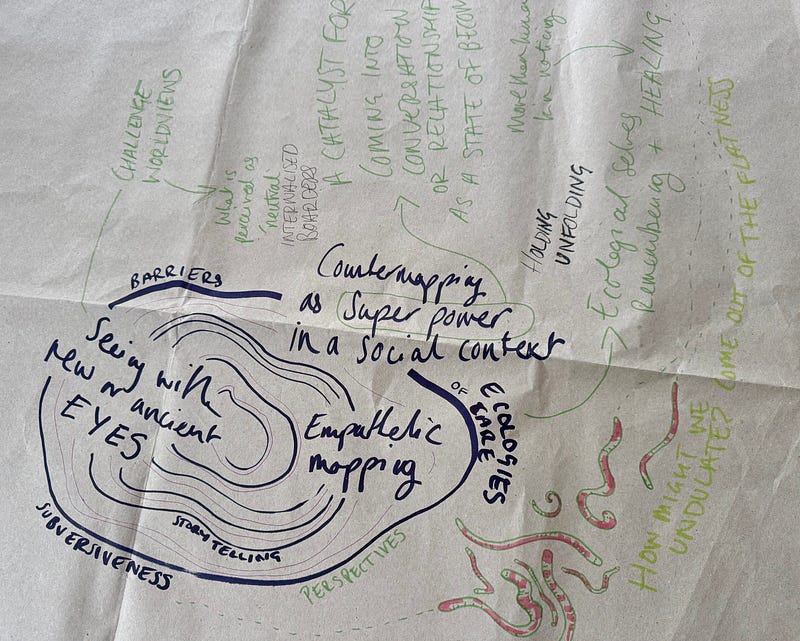 CHALLENGE
WORLDVIEWS
What is
perceived as
neutral
INTERNALISED
BOARDERS
A CATALYST FOR
COMING INTO
CONVERSATION
OR RELATIONSHIP
AS A STATE OF BECOM
More than human
kin noticing
HOLDING
UNFOLDING
Ecological selves
Remembering + HEALING
HOW MIGHT WE
UNDULATE? COME OUT OF THE FLATNESS
BARRIERS
Countermapping
as Super power
in a social context
Seeing with
new or ancient
EYES
Empathetic
mapping
ECOLOGIES
OF
CARE
STORYTELLING
SUBVERSIVENESS
PERSPECTIVES